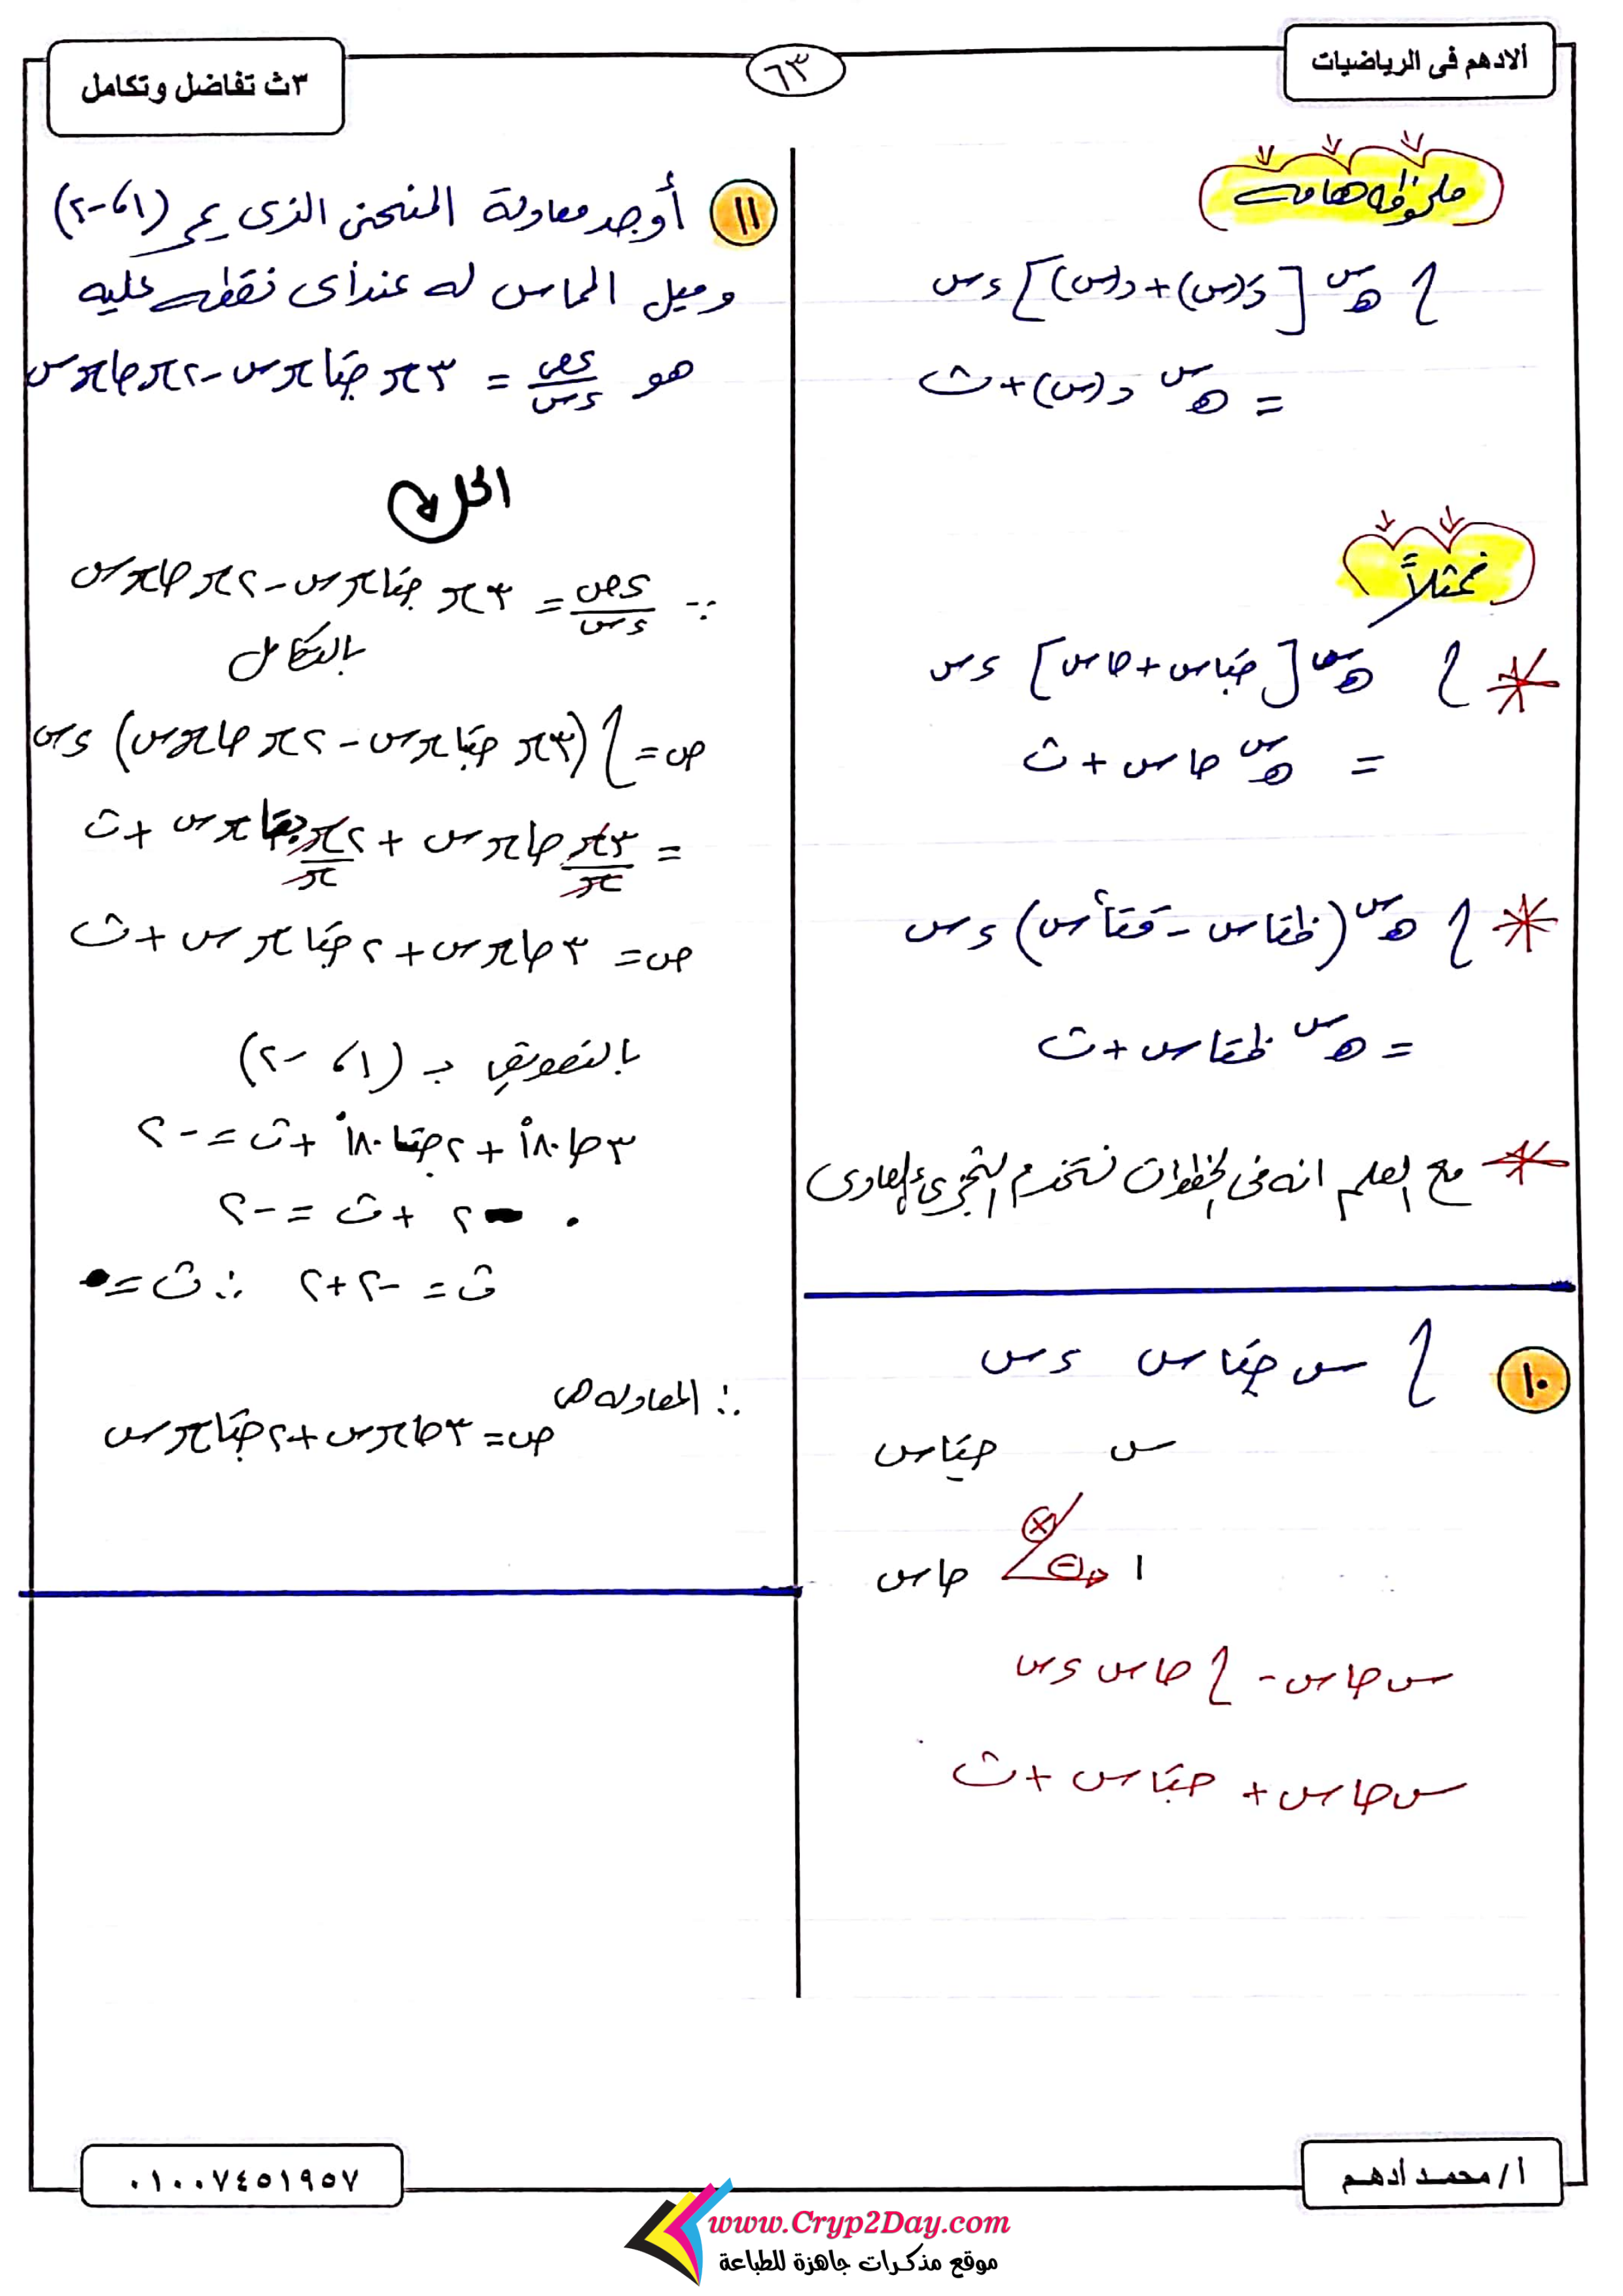 الادهم فى الرياضيات
٦٣
٣ث تفاضل وتكامل
ملحوظه هامه
∫ هـ^س [دَ(س) + د(س)] ءس
= هـ^س د(س) + ث
فمثلاً
* ∫ هـ^س [جتاس + جاس] ءس
= هـ^س جاس + ث
* ∫ هـ^س (ظتاس - قتا^٢س) ءس
= هـ^س ظتاس + ث
* مع العلم انه فى الخطوات نستخدم التجزئ العادى
١٠ ∫ س جتاس ءس
س جتاس
١ جاس
س جاس - ∫ جاس ءس
س جاس + جتاس + ث
١١ أوجد معادلة المنحنى الذى يمر (١، -٢)
وميل المماس له عند أى نقطه عليه
هو ءص/ءس = ٣π جتاπس - ٢π جاπس
الحل
∵ ءص/ءس = ٣π جتاπس - ٢π جاπس
بالتكامل
ص = ∫ (٣π جتاπس - ٢π جاπس) ءس
= ٣π/π جاπس + ٢π/π جتاπس + ث
ص = ٣ جاπس + ٢ جتاπس + ث
بالتعويض بـ (١، -٢)
٣ جا١٨٠° + ٢ جتا١٨٠° + ث = -٢
٠ - ٢ + ث = -٢
ث = -٢ + ٢ ∴ ث = ٠
∴ المعادله هى
ص = ٣ جاπس + ٢ جتاπس
أ/ محمد أدهم
٠١٠٠٧٤٥١٩٥٧
www.Cryp2Day.com
موقع مذكرات جاهزة للطباعة